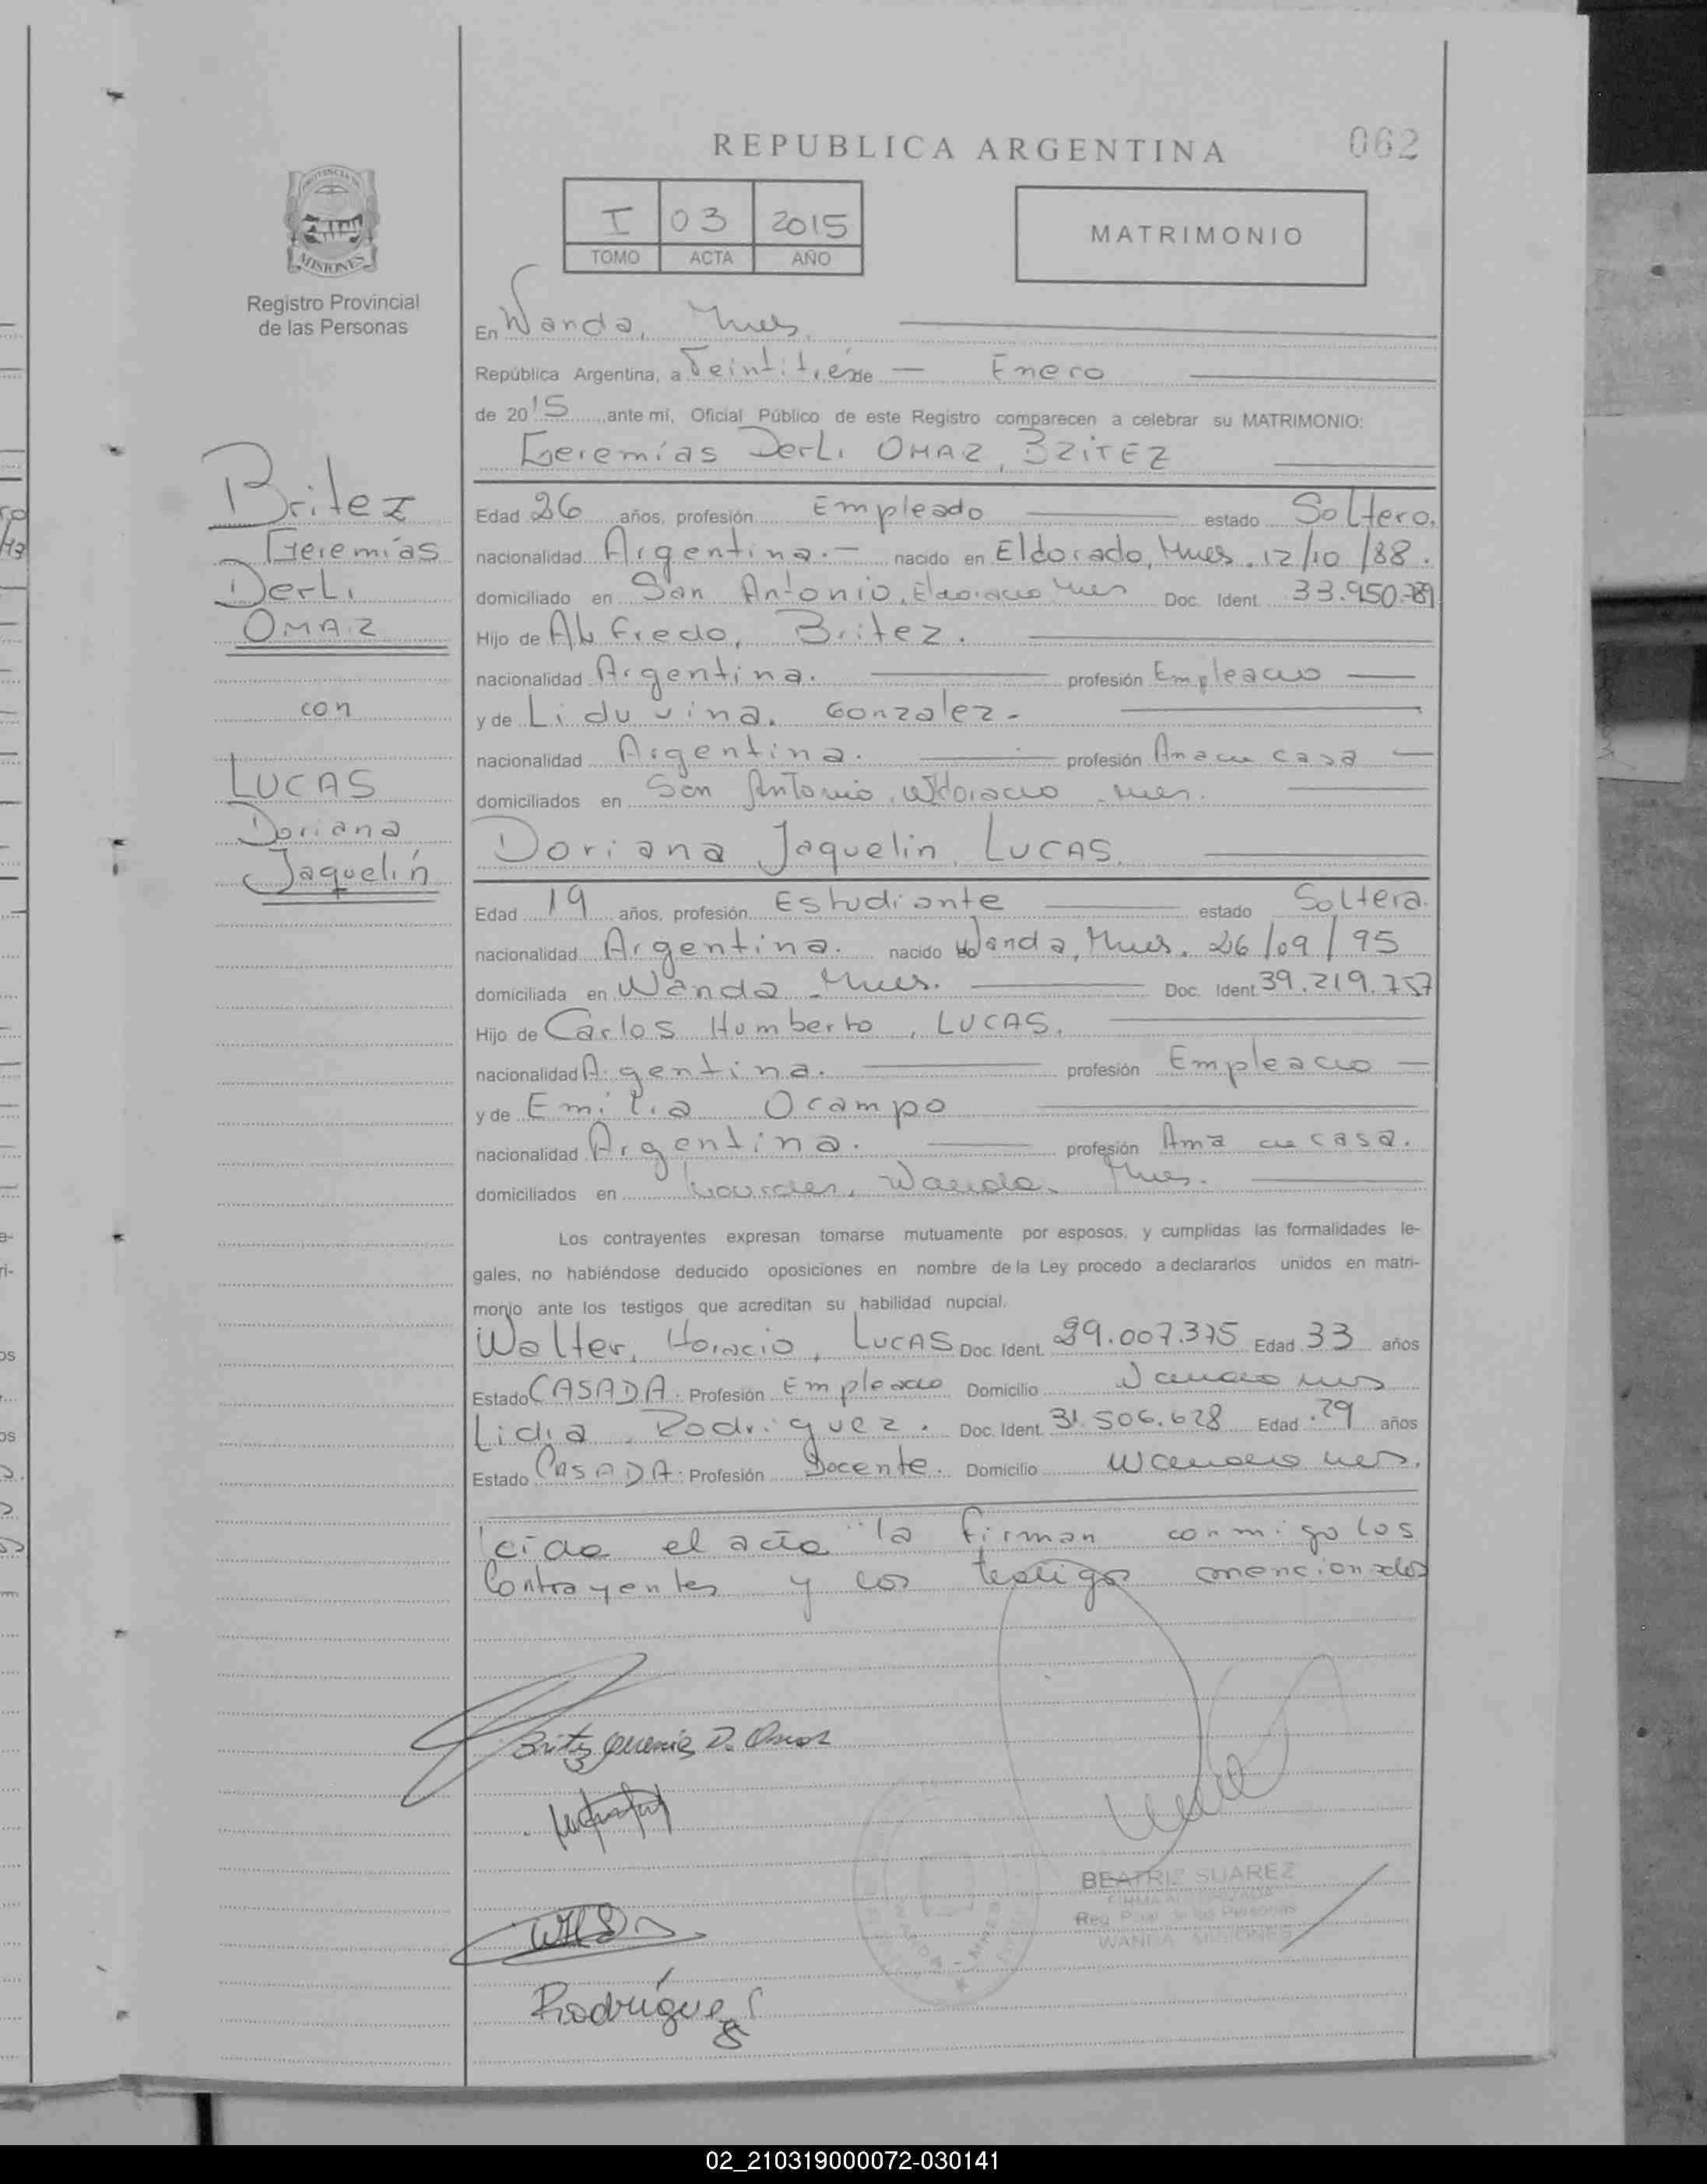 REPUBLICA ARGENTINA
062
I 03 2015
TOMO ACTA AÑO
MATRIMONIO
PROVINCIA DE
MISIONES
Registro Provincial
de las Personas
En Wanda, Mnes.
República Argentina, a Veintitrés de Enero
de 2015, ante mí, Oficial Público de este Registro comparecen a celebrar su MATRIMONIO:
Geremías Derli OMAR, BRITEZ
Britez
Geremías
Derli
OMAR
con
LUCAS
Doriana
Jaquelín
Edad 26 años, profesión Empleado estado Soltero.
nacionalidad Argentina.- nacido en Eldorado, Mnes. 12/10/88.
domiciliado en San Antonio, Eldorado Mnes Doc. Ident. 33.950.
Hijo de Alfredo, Britez.
nacionalidad Argentina. profesión Empleado
y de Liduvina. Gonzalez.
nacionalidad Argentina. profesión Ama de casa
domiciliados en San Antonio, Eldorado Mnes.
Doriana Jaquelin, LUCAS.
Edad 19 años, profesión Estudiante estado Soltera.
nacionalidad Argentina. nacido Wanda, Mnes. 26/09/95
domiciliada en Wanda Mnes. Doc. Ident. 39.219.757
Hijo de Carlos Humberto, LUCAS.
nacionalidad Argentina. profesión Empleado
y de Emilia Ocampo
nacionalidad Argentina. profesión Ama de casa.
domiciliados en Wanda Mnes.
Los contrayentes expresan tomarse mutuamente por esposos, y cumplidas las formalidades le-
gales, no habiéndose deducido oposiciones en nombre de la Ley procedo a declararlos unidos en matri-
monio ante los testigos que acreditan su habilidad nupcial.
Walter, Horacio, LUCAS Doc. Ident. 29.007.375 Edad 33 años
Estado CASADA. Profesión Empleado Domicilio Wanda Mnes
Lidia, Rodriguez. Doc. Ident. 31.506.628 Edad 29 años
Estado CASADA. Profesión Docente. Domicilio Wanda Mnes.
Leída el acta la firman conmigo los
Contrayentes y los testigos mencionados
Britez Geremías D. Omar
Rodríguez
BEATRIZ SUAREZ
FIRMA AUTORIZADA
Reg. Prov. de las Personas
WANDA MISIONES
02_210319000072-030141